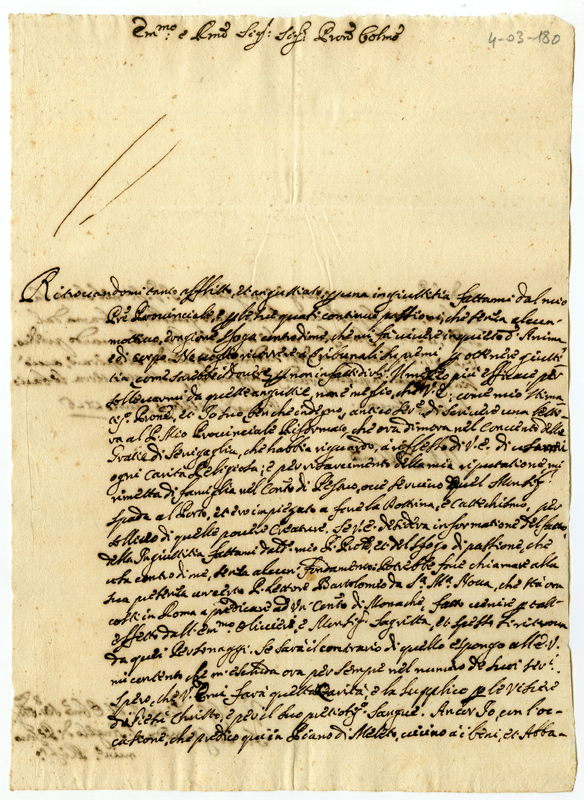 Em.mo e R.mo Sig.r Sig.r Pron Colmo
4-03-180
Ritrovandomi tanto afflitto, et angustiato, p una ingiustitia fattami dal mio
Pre Provinciale, e p le sue quasi continue passioni, che senza alcun
mottivo, e ragione sfoga contro di me, che mi fà vivere inquieto d'Anima
e di corpo. Ne volsi ricorrere a Tribunali supremi, p ottener giusti-
tia, come sarebbe dovere p non infastidirli. Il mezzo più efficace per
sollevarmi da queste angustie, non è meglio, che V.E. come mio stima-
tis.o Perone, et Io suo benche indegno, antico Ser.e di scrivere una letti-
va al P. Mio Provinciale Riformato, che ora dimora nel Convento delle
Gratie di Senigaglia, che habbia riguardo, à riflesso di V.E. di usarmi
ogni Carità Religiosa; e per risarcimento della mia riputatione mi
rimetta di famiglia nel Conto di Pesaro, ove servivo quel Mensig.r
Spada al Porto, et ero impiegato a fare la Dottrina, e Cattechismo, per
sollievo di quelle povere Creature. Se V.E. desidera informatione del fatto,
della Ingiustitia fattami dal mio P. Prole et del sfogo di passione, che
usa contro di me, senza alcun fondamento potrebbe fare chiamare alla
sua presenza un certo P. Lettore Bartolomeo da S.ta M.a Nova, che sta ora
costì in Roma a predicare ad un Cento di Monache, fatto venire p tall'
effetto dall'Em.mo Olivieri, e Mensig.r Sagrista, et spesso si ritrova
da quei Personaggi. Se sarà il contrario di quello espongo all'E.V.
mi contento che m'escluda ora per sempre nel numero de suoi ser.i
Spero, che V.E. mi farà questa Carità, e la supplico p le viscere
di Giesù Christo, e per il suo pretios.o Sangue. Ancor Io, con l'oc-
casione, che predico qui in Piano di Meleto, vicino à i beni, et Abba-